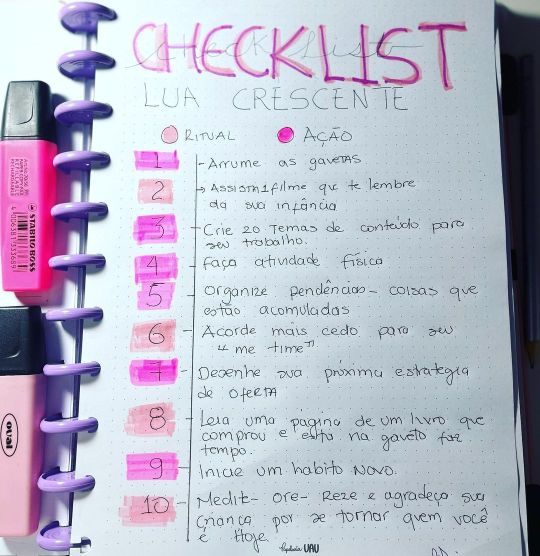 CHECKLIST
LUA CRESCENTE
RITUAL AÇÃO
1 - Arrume as gavetas
2 → Assista 1 filme que te lembre
da sua infância
3 - Crie 20 temas de conteúdo para
seu trabalho.
4 - Faça atividade física
5 - Organize pendências - coisas que
estão acumuladas
6 - Acorde mais cedo para seu
"me time"
7 - Desenhe sua próxima estrategia
de oferta
8 - Leia uma pagina de um livro que
comprou e esta na gaveta faz
tempo.
9 - Inicie um habito novo.
10 - Medite - ore - Reze e agradeça sua
criança por se tornar quem você
é Hoje
UAU
STABILO BOSS
oval